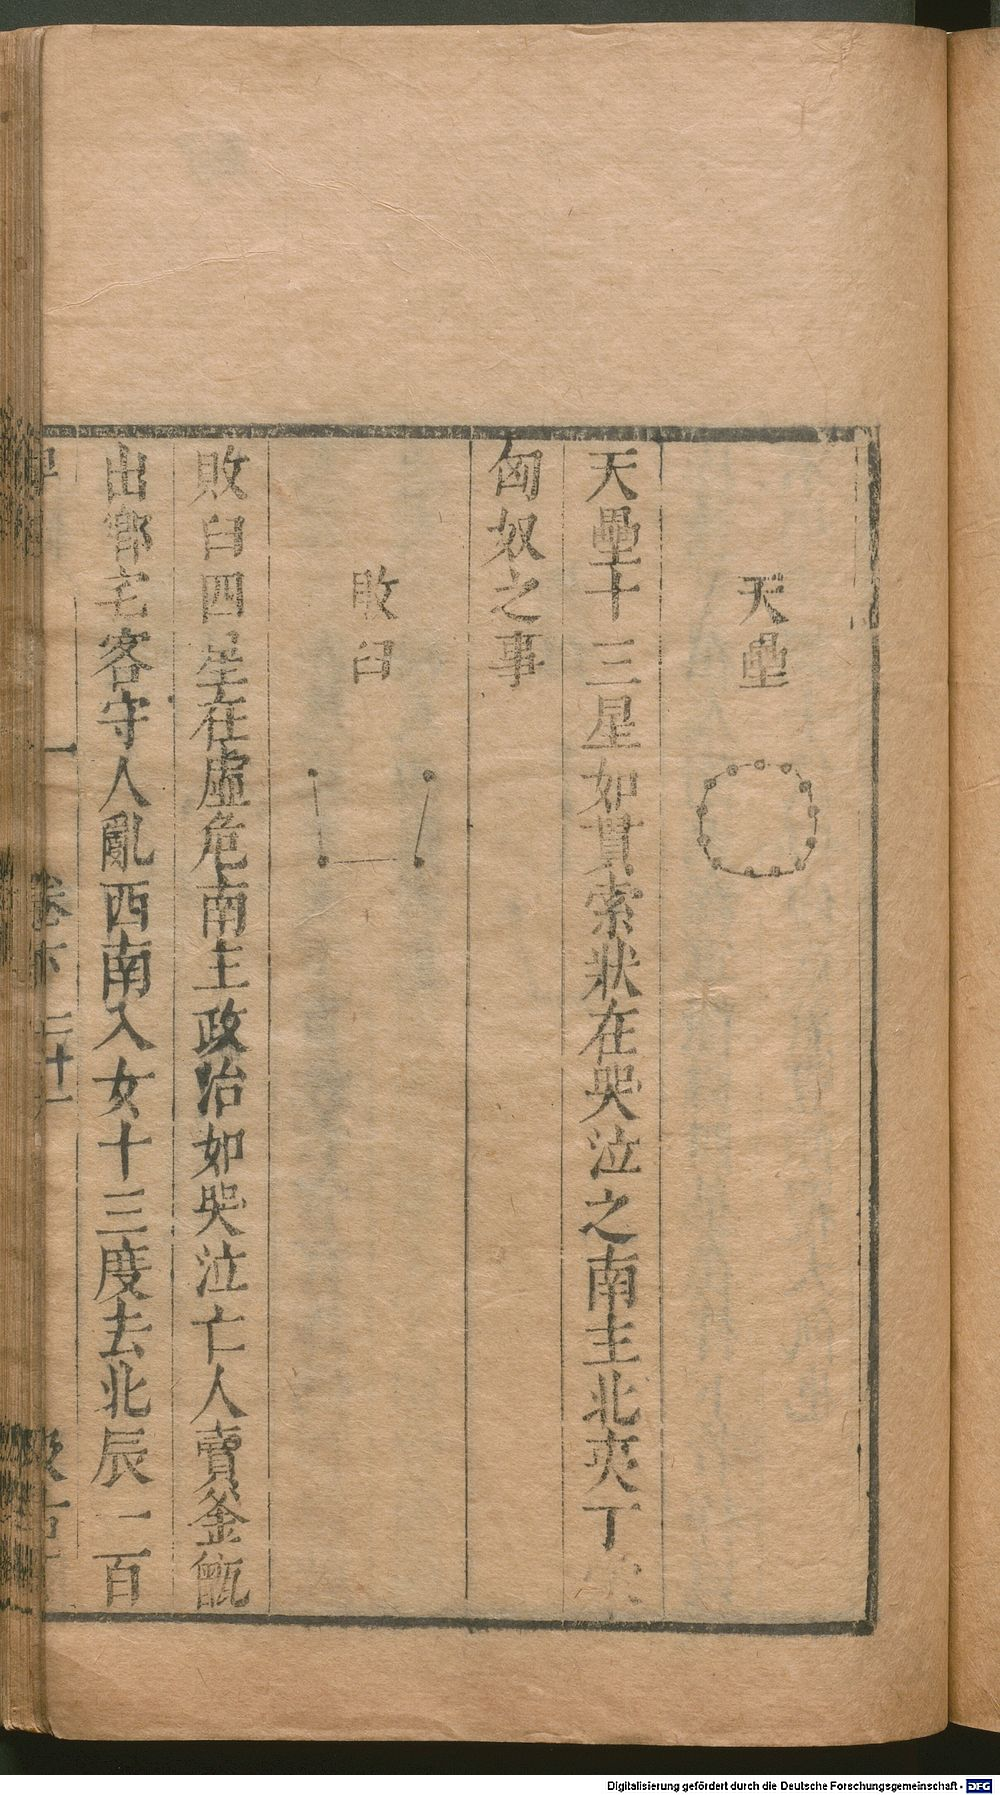 天壘
天壘十三星如貫索狀在哭泣之南主北夾丁
匈奴之事
敗臼
敗臼四星在虛危南主政治如哭泣亡人賣釜甑
出鄉宅客守人亂西南入女十三度去北辰一百
Digitalisierung gefördert durch die Deutsche Forschungsgemeinschaft - DFG